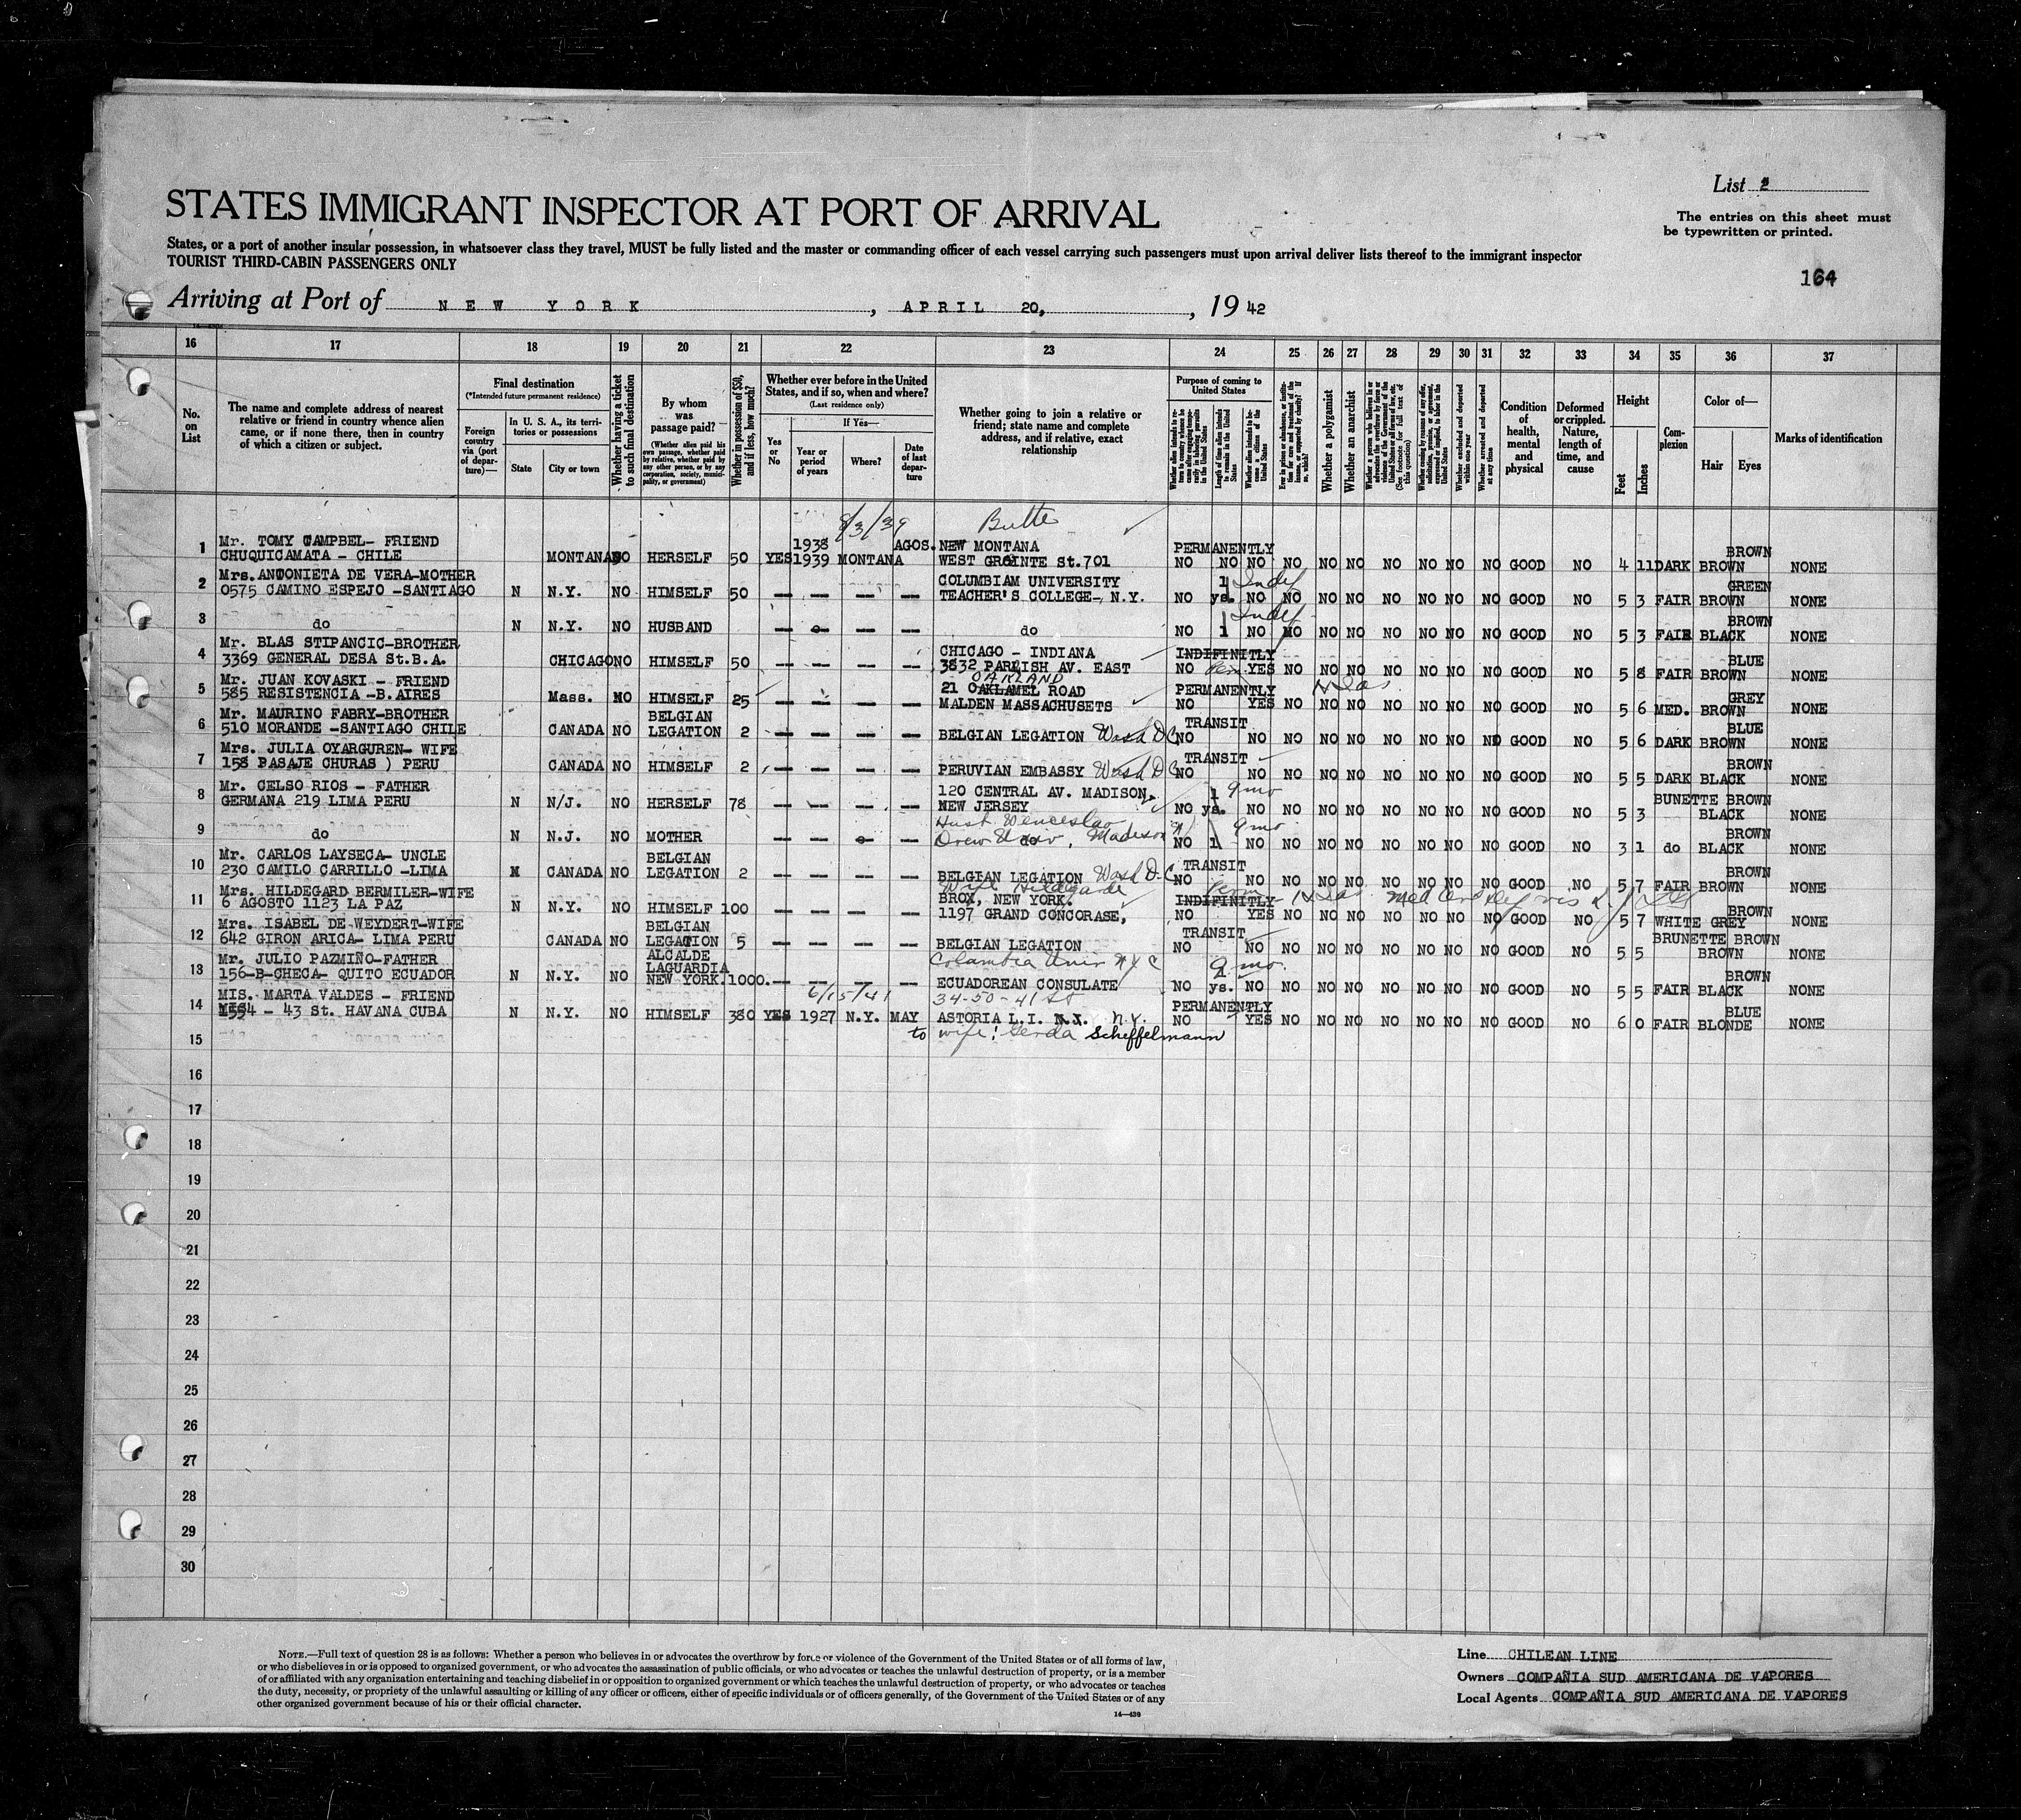 List 2
STATES IMMIGRANT INSPECTOR AT PORT OF ARRIVAL
The entries on this sheet must
be typewritten or printed.
States, or a port of another insular possession, in whatsoever class they travel, MUST be fully listed and the master or commanding officer of each vessel carrying such passengers must upon arrival deliver lists thereof to the immigrant inspector
TOURIST THIRD-CABIN PASSENGERS ONLY
164
Arriving at Port of NEW YORK, APRIL 20, 1942
16 17 18 19 20 21 22 23 24 25 26 27 28 29 30 31 32 33 34 35 36 37
No. on List
The name and complete address of nearest relative or friend in country whence alien came, or if none there, then in country of which a citizen or subject.
Final destination
(*Intended future permanent residence)
Foreign country via (port of departure)—
In U. S. A., its territories or possessions
State
City or town
Whether having a ticket to such final destination
By whom was passage paid?
(Whether alien paid his own passage, whether paid by relative, whether paid by any other person, or by any corporation, society, municipality, or government)
Whether in possession of $50, and if less, how much?
Whether ever before in the United States, and if so, when and where?
(Last residence only)
Yes or No
If Yes—
Year or period of years
Where?
Date of last departure
Whether going to join a relative or friend; state name and complete address, and if relative, exact relationship
Purpose of coming to United States
Length of time alien intends to remain in the United States
Whether alien intends to become a citizen of the United States
Whether a polygamist
Whether an anarchist
(See footnote for full text of this question)
Whether excluded and deported within one year
Whether arrested and deported at any time
Condition of health, mental and physical
Deformed or crippled. Nature, length of time, and cause
Height
Feet
Inches
Complexion
Color of—
Hair
Eyes
Marks of identification
8/3/39 Butte
Mr. TOMY CAMPBEL- FRIEND 1938 AGOS. NEW MONTANA PERMANENTLY BROWN
1 CHUQUICAMATA - CHILE MONTANA NO HERSELF 50 YES 1939 MONTANA WEST GROINTE St.701 NO NO NO NO NO NO NO NO NO NO GOOD NO 4 11 DARK BROWN NONE
Mrs. ANTONIETA DE VERA-MOTHER COLUMBIAM UNIVERSITY 1 Indef GREEN
2 0575 CAMINO ESPEJO -SANTIAGO N N.Y. NO HIMSELF 50 — — — — TEACHER'S COLLEGE-, N.Y. NO ys. NO NO NO NO NO NO NO NO GOOD NO 5 3 FAIR BROWN NONE
Indef BROWN
3 do N N.Y. NO HUSBAND — — — — do NO 1 NO NO NO NO NO NO NO NO GOOD NO 5 3 FAIR BLACK NONE
Mr. BLAS STIPANCIC-BROTHER CHICAGO - INDIANA INDIFINITLY BLUE
4 3369 GENERAL DESA St.B.A. CHICAGO NO HIMSELF 50 — — — — 3832 PARLISH AV. EAST NO Perm YES NO NO NO NO NO NO NO GOOD NO 5 8 FAIR BROWN NONE
OAKLAND
Mr. JUAN KOVASKI - FRIEND 21 OAKLAMEL ROAD PERMANENTLY GREY
5 585 RESISTENCIA -B.AIRES Mass. NO HIMSELF 25 — — — — MALDEN MASSACHUSETS NO YES NO NO NO NO NO NO NO GOOD NO 5 6 MED. BROWN NONE
Mr. MAURINO FABRY-BROTHER BELGIAN TRANSIT BLUE
6 510 MORANDE -SANTIAGO CHILE CANADA NO LEGATION 2 — — — — BELGIAN LEGATION Wash D C NO NO NO NO NO NO NO NO NO GOOD NO 5 6 DARK BROWN NONE
Mrs. JULIA OYARGUREN- WIFE TRANSIT BROWN
7 158 PASAJE CHURAS ) PERU CANADA NO HIMSELF 2 — — — — PERUVIAN EMBASSY Wash D C NO NO NO NO NO NO NO NO NO GOOD NO 5 5 DARK BLACK NONE
Mr. CELSO RIOS - FATHER 120 CENTRAL AV. MADISON, 1 9 mo BUNETTE BROWN
8 GERMANA 219 LIMA PERU N N/J. NO HERSELF 78 — — — — NEW JERSEY NO ys. NO NO NO NO NO NO NO NO GOOD NO 5 3 BLACK NONE
Husb Wenceslao 9 mo BROWN
9 do N N.J. NO MOTHER — — — — do Drew Univ, Madison NJ NO 1 NO NO NO NO NO NO NO NO GOOD NO 3 1 do BLACK NONE
Mr. CARLOS LAYSECA- UNCLE BELGIAN TRANSIT BROWN
10 230 CAMILO CARRILLO -LIMA CANADA NO LEGATION 2 — — — — BELGIAN LEGATION Wash D.C NO NO NO NO NO NO NO NO NO GOOD NO 5 7 FAIR BROWN NONE
Wife Hildegarde Perm
Mrs. HILDEGARD BERMILER-WIFE BROX, NEW YORK. INDIFINITLY Med Cert BROWN
11 6 AGOSTO 1123 LA PAZ N N.Y. NO HIMSELF 100 — — — — 1197 GRAND CONCORASE, NO YES NO NO NO NO NO NO NO GOOD NO 5 7 WHITE GREY NONE
Mrs. ISABEL DE WEYDERT-WIFE BELGIAN TRANSIT BRUNETTE BROWN
12 642 GIRON ARICA- LIMA PERU CANADA NO LEGATION 5 — — — — BELGIAN LEGATION NO NO NO NO NO NO NO NO NO GOOD NO 5 5 BROWN NONE
Mr. JULIO PAZMIÑO-FATHER ALCALDE LAGUARDIA Columbia Univ N Y C 9 mo. BROWN
13 156-B-CHECA- QUITO ECUADOR N N.Y. NO NEW YORK. 1000. — — — — ECUADOREAN CONSULATE NO ys. NO NO NO NO NO NO NO NO GOOD NO 5 5 FAIR BLACK NONE
MIS. MARTA VALDES - FRIEND 6/15/41 34-50-41 St PERMANENTLY BLUE
14 1554 - 43 St. HAVANA CUBA N N.Y. NO HIMSELF 380 YES 1927 N.Y. MAY ASTORIA L.I. N.Y. NO YES NO NO NO NO NO NO NO GOOD NO 6 0 FAIR BLONDE NONE
15 to wife: Gerda Scheffelmann
16
17
18
19
20
21
22
23
24
25
26
27
28
29
30
NOTE.—Full text of question 28 is as follows: Whether a person who believes in or advocates the overthrow by force or violence of the Government of the United States or of all forms of law,
or who disbelieves in or is opposed to organized government, or who advocates the assassination of public officials, or who advocates or teaches the unlawful destruction of property, or is a member
of or affiliated with any organization entertaining and teaching disbelief in or opposition to organized government or which teaches the unlawful destruction of property, or who advocates or teaches
the duty, necessity, or propriety of the unlawful assaulting or killing of any officer or officers, either of specific individuals or of officers generally, of the Government of the United States or of any
other organized government because of his or their official character.
14—439
Line CHILEAN LINE
Owners COMPAÑIA SUD AMERICANA DE VAPORES
Local Agents COMPAÑIA SUD AMERICANA DE VAPORES